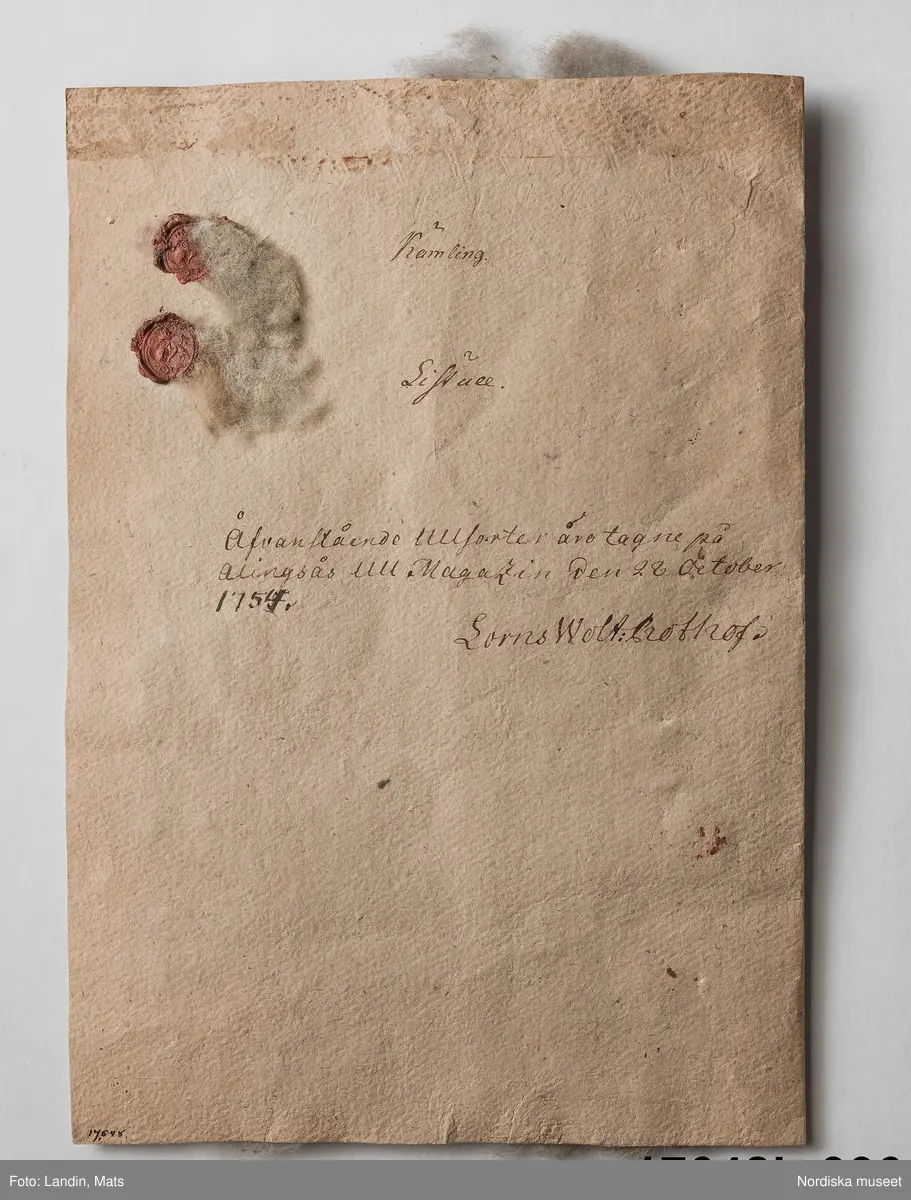 Kämling.
Åfvanstående Ullsorter äro tagne på
Alingsås Ull Magazin Den 22 October
1754.
Wolt: Rothof.
17648.
Foto: Landin, Mats
Nordiska museet